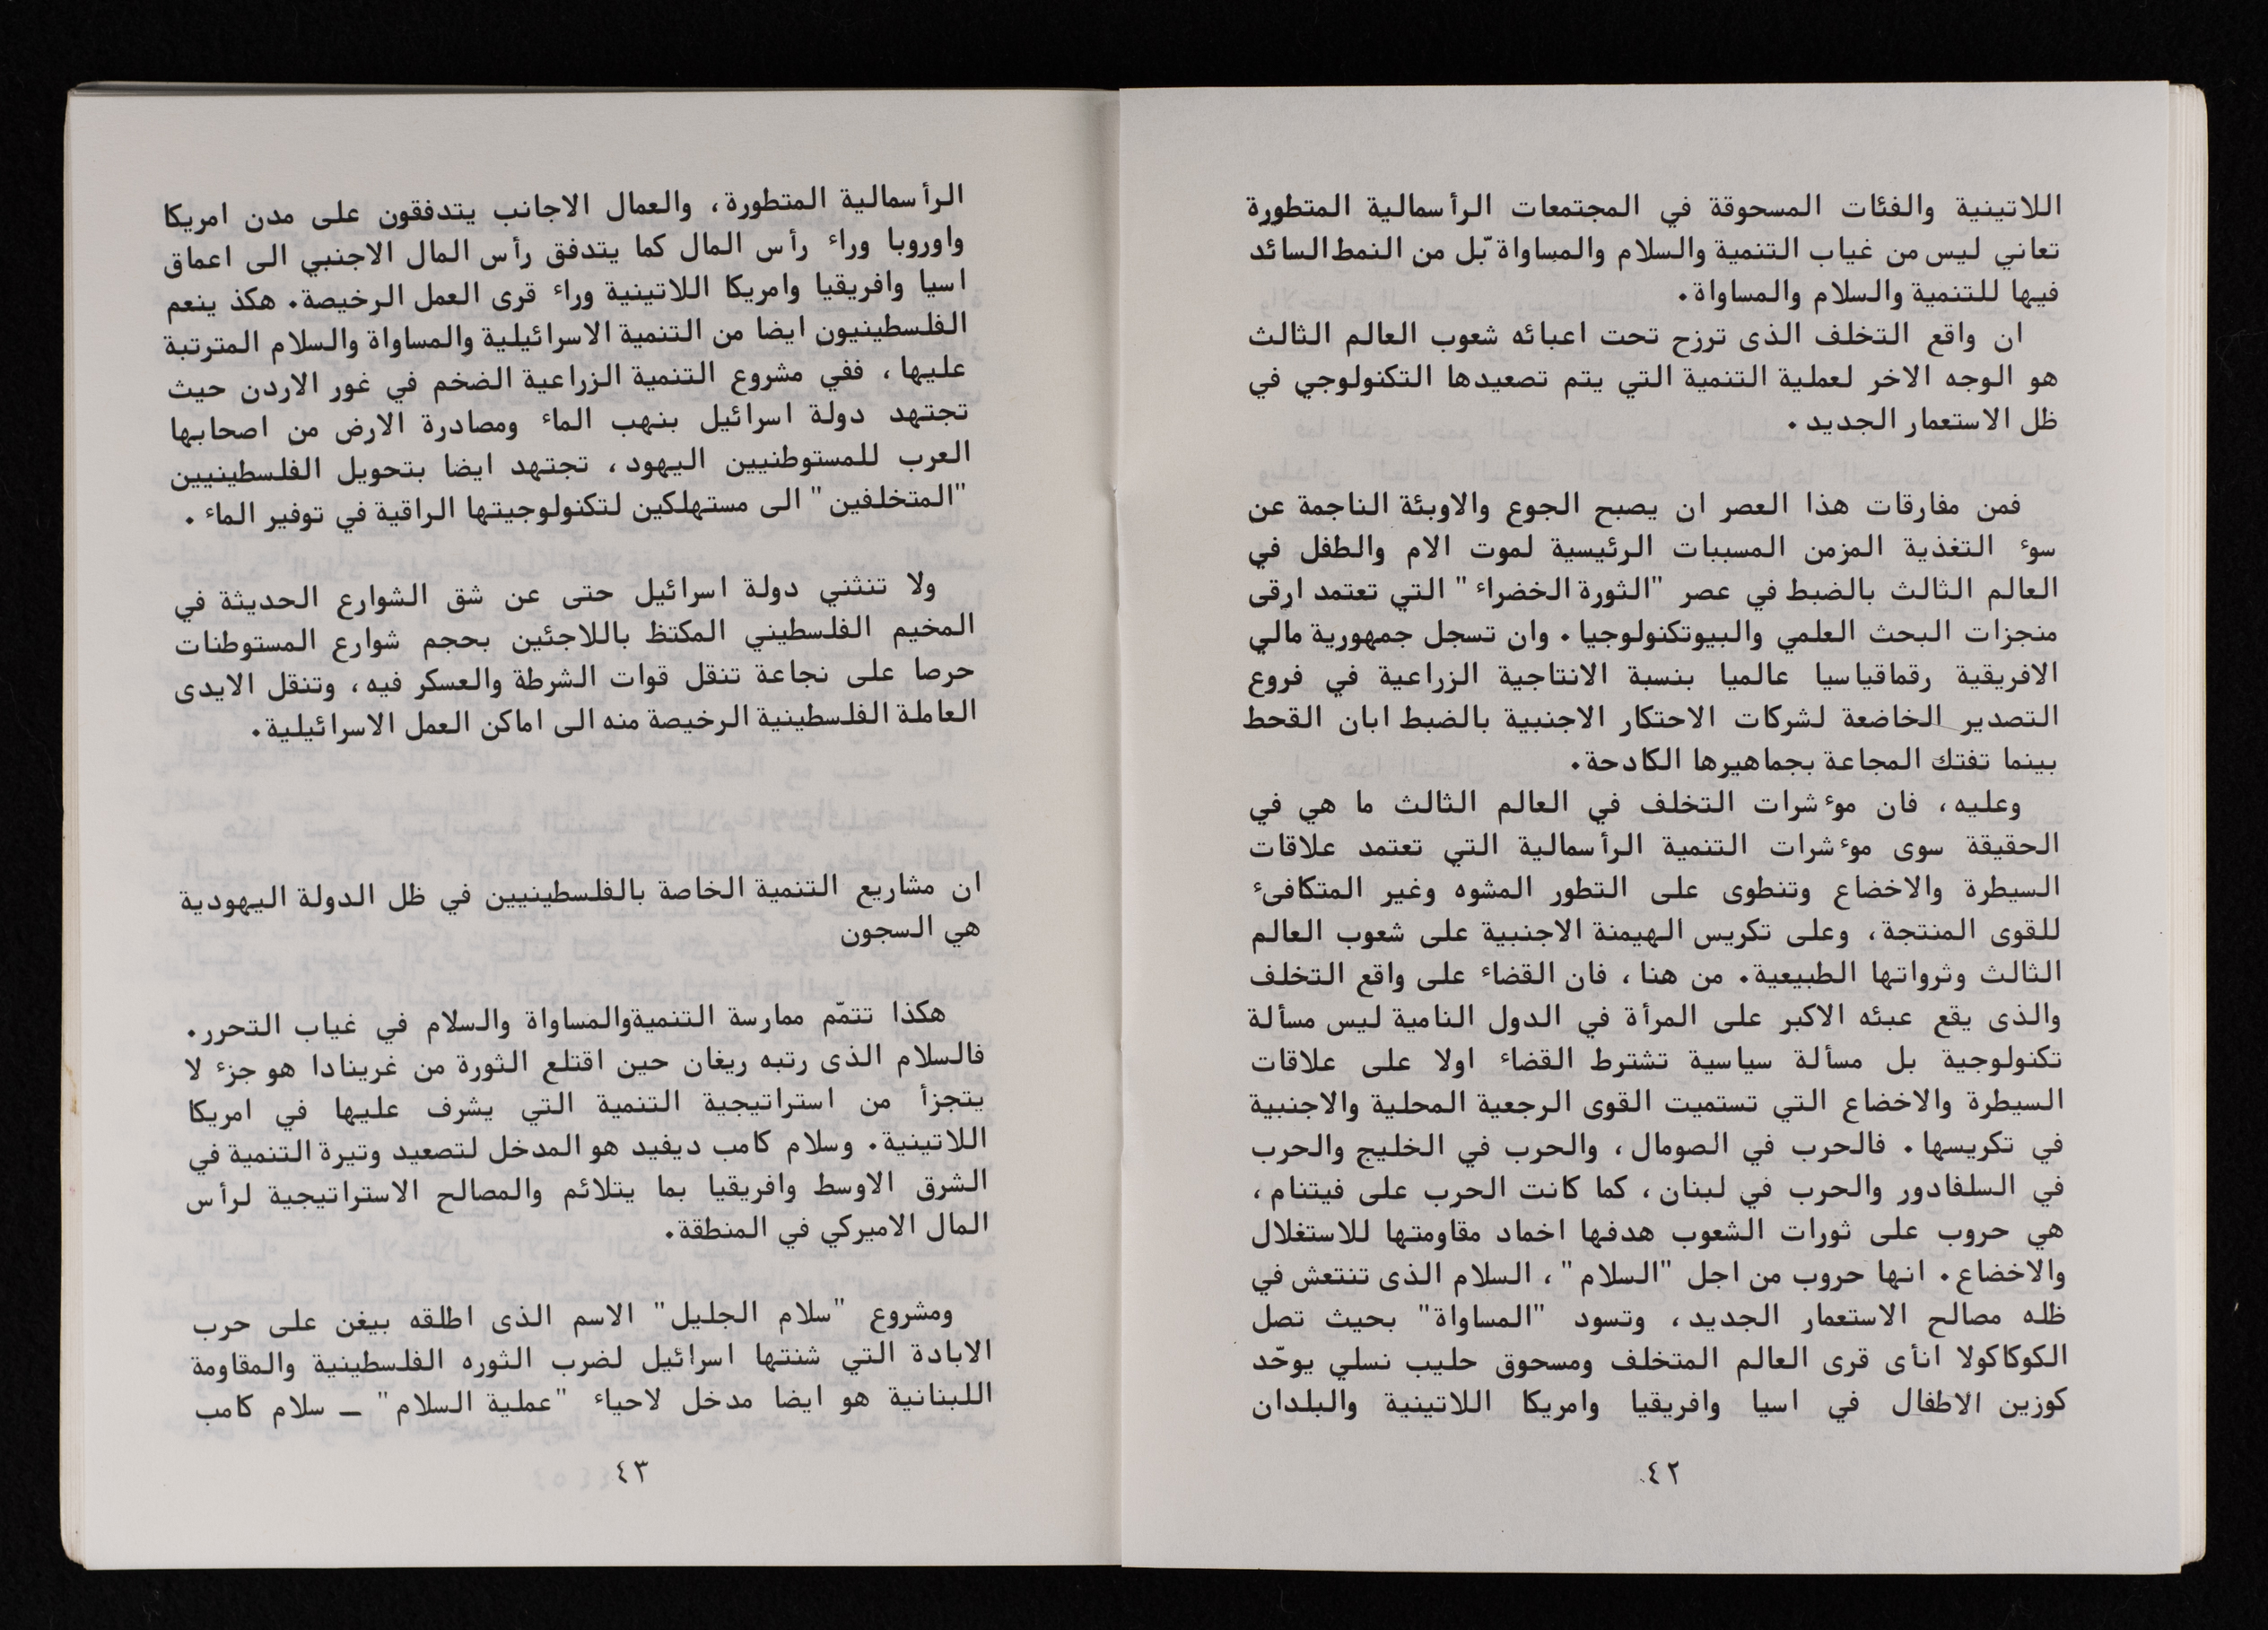 اللاتينية والفئات المسحوقة في المجتمعات الرأسمالية المتطورة
تعاني ليس من غياب التنمية والسلام والمساواة بّل من النمط السائد
فيها للتنمية والسلام والمساواة.
ان واقع التخلف الذى ترزح تحت اعبائه شعوب العالم الثالث
هو الوجه الاخر لعملية التنمية التي يتم تصعيدها التكنولوجي في
ظل الاستعمار الجديد.
فمن مفارقات هذا العصر ان يصبح الجوع والاوبئة الناجمة عن
سوء التغذية المزمن المسببات الرئيسية لموت الام والطفل في
العالم الثالث بالضبط في عصر "الثورة الخضراء" التي تعتمد ارقى
منجزات البحث العلمي والبيوتكنولوجيا. وان تسجل جمهورية مالي
الافريقية رقماقياسيا عالميا بنسبة الانتاجية الزراعية في فروع
التصدير الخاضعة لشركات الاحتكار الاجنبية بالضبط ابان القحط
بينما تفتك المجاعة بجماهيرها الكادحة.
وعليه، فان موءشرات التخلف في العالم الثالث ما هي في
الحقيقة سوى موءشرات التنمية الرأسمالية التي تعتمد علاقات
السيطرة والاخضاع وتنطوى على التطور المشوه وغير المتكافىء
للقوى المنتجة، وعلى تكريس الهيمنة الاجنبية على شعوب العالم
الثالث وثرواتها الطبيعية. من هنا، فان القضاء على واقع التخلف
والذى يقع عبئه الاكبر على المرأة في الدول النامية ليس مسألة
تكنولوجية بل مسألة سياسية تشترط القضاء اولا على علاقات
السيطرة والاخضاع التي تستميت القوى الرجعية المحلية والاجنبية
في تكريسها. فالحرب في الصومال، والحرب في الخليج والحرب
في السلفادور والحرب في لبنان، كما كانت الحرب على فيتنام،
هي حروب على ثورات الشعوب هدفها اخماد مقاومتها للاستغلال
والاخضاع. انها حروب من اجل "السلام"، السلام الذى تنتعش في
ظله مصالح الاستعمار الجديد، وتسود "المساواة" بحيث تصل
الكوكاكولا انأى قرى العالم المتخلف ومسحوق حليب نسلي يوحّد
كوزين الاطفال في اسيا وافريقيا وامريكا اللاتينية والبلدان
٤٢
الرأسمالية المتطورة، والعمال الاجانب يتدفقون على مدن امريكا
واوروبا وراء رأس المال كما يتدفق رأس المال الاجنبي الى اعماق
اسيا وافريقيا وامريكا اللاتينية وراء قرى العمل الرخيصة. هكذ ينعم
الفلسطينيون ايضا من التنمية الاسرائيلية والمساواة والسلام المترتبة
عليها، ففي مشروع التنمية الزراعية الضخم في غور الاردن حيث
تجتهد دولة اسرائيل بنهب الماء ومصادرة الارض من اصحابها
العرب للمستوطنيين اليهود، تجتهد ايضا بتحويل الفلسطينيين
"المتخلفين" الى مستهلكين لتكنولوجيتها الراقية في توفير الماء.
ولا تنثني دولة اسرائيل حتى عن شق الشوارع الحديثة في
المخيم الفلسطيني المكتظ باللاجئين بحجم شوارع المستوطنات
حرصا على نجاعة تنقل قوات الشرطة والعسكر فيه، وتنقل الايدى
العاملة الفلسطينية الرخيصة منه الى اماكن العمل الاسرائيلية.
ان مشاريع التنمية الخاصة بالفلسطينيين في ظل الدولة اليهودية
هي السجون
هكذا تتمّم ممارسة التنميةوالمساواة والسلام في غياب التحرر.
فالسلام الذى رتبه ريغان حين اقتلع الثورة من غرينادا هو جزء لا
يتجزأ من استراتيجية التنمية التي يشرف عليها في امريكا
اللاتينية. وسلام كامب ديفيد هو المدخل لتصعيد وتيرة التنمية في
الشرق الاوسط وافريقيا بما يتلائم والمصالح الاستراتيجية لرأس
المال الاميركي في المنطقة.
ومشروع "سلام الجليل" الاسم الذى اطلقه بيغن على حرب
الابادة التي شنتها اسرائيل لضرب الثوره الفلسطينية والمقاومة
اللبنانية هو ايضا مدخل لاحياء "عملية السلام" ــ سلام كامب
٤٣